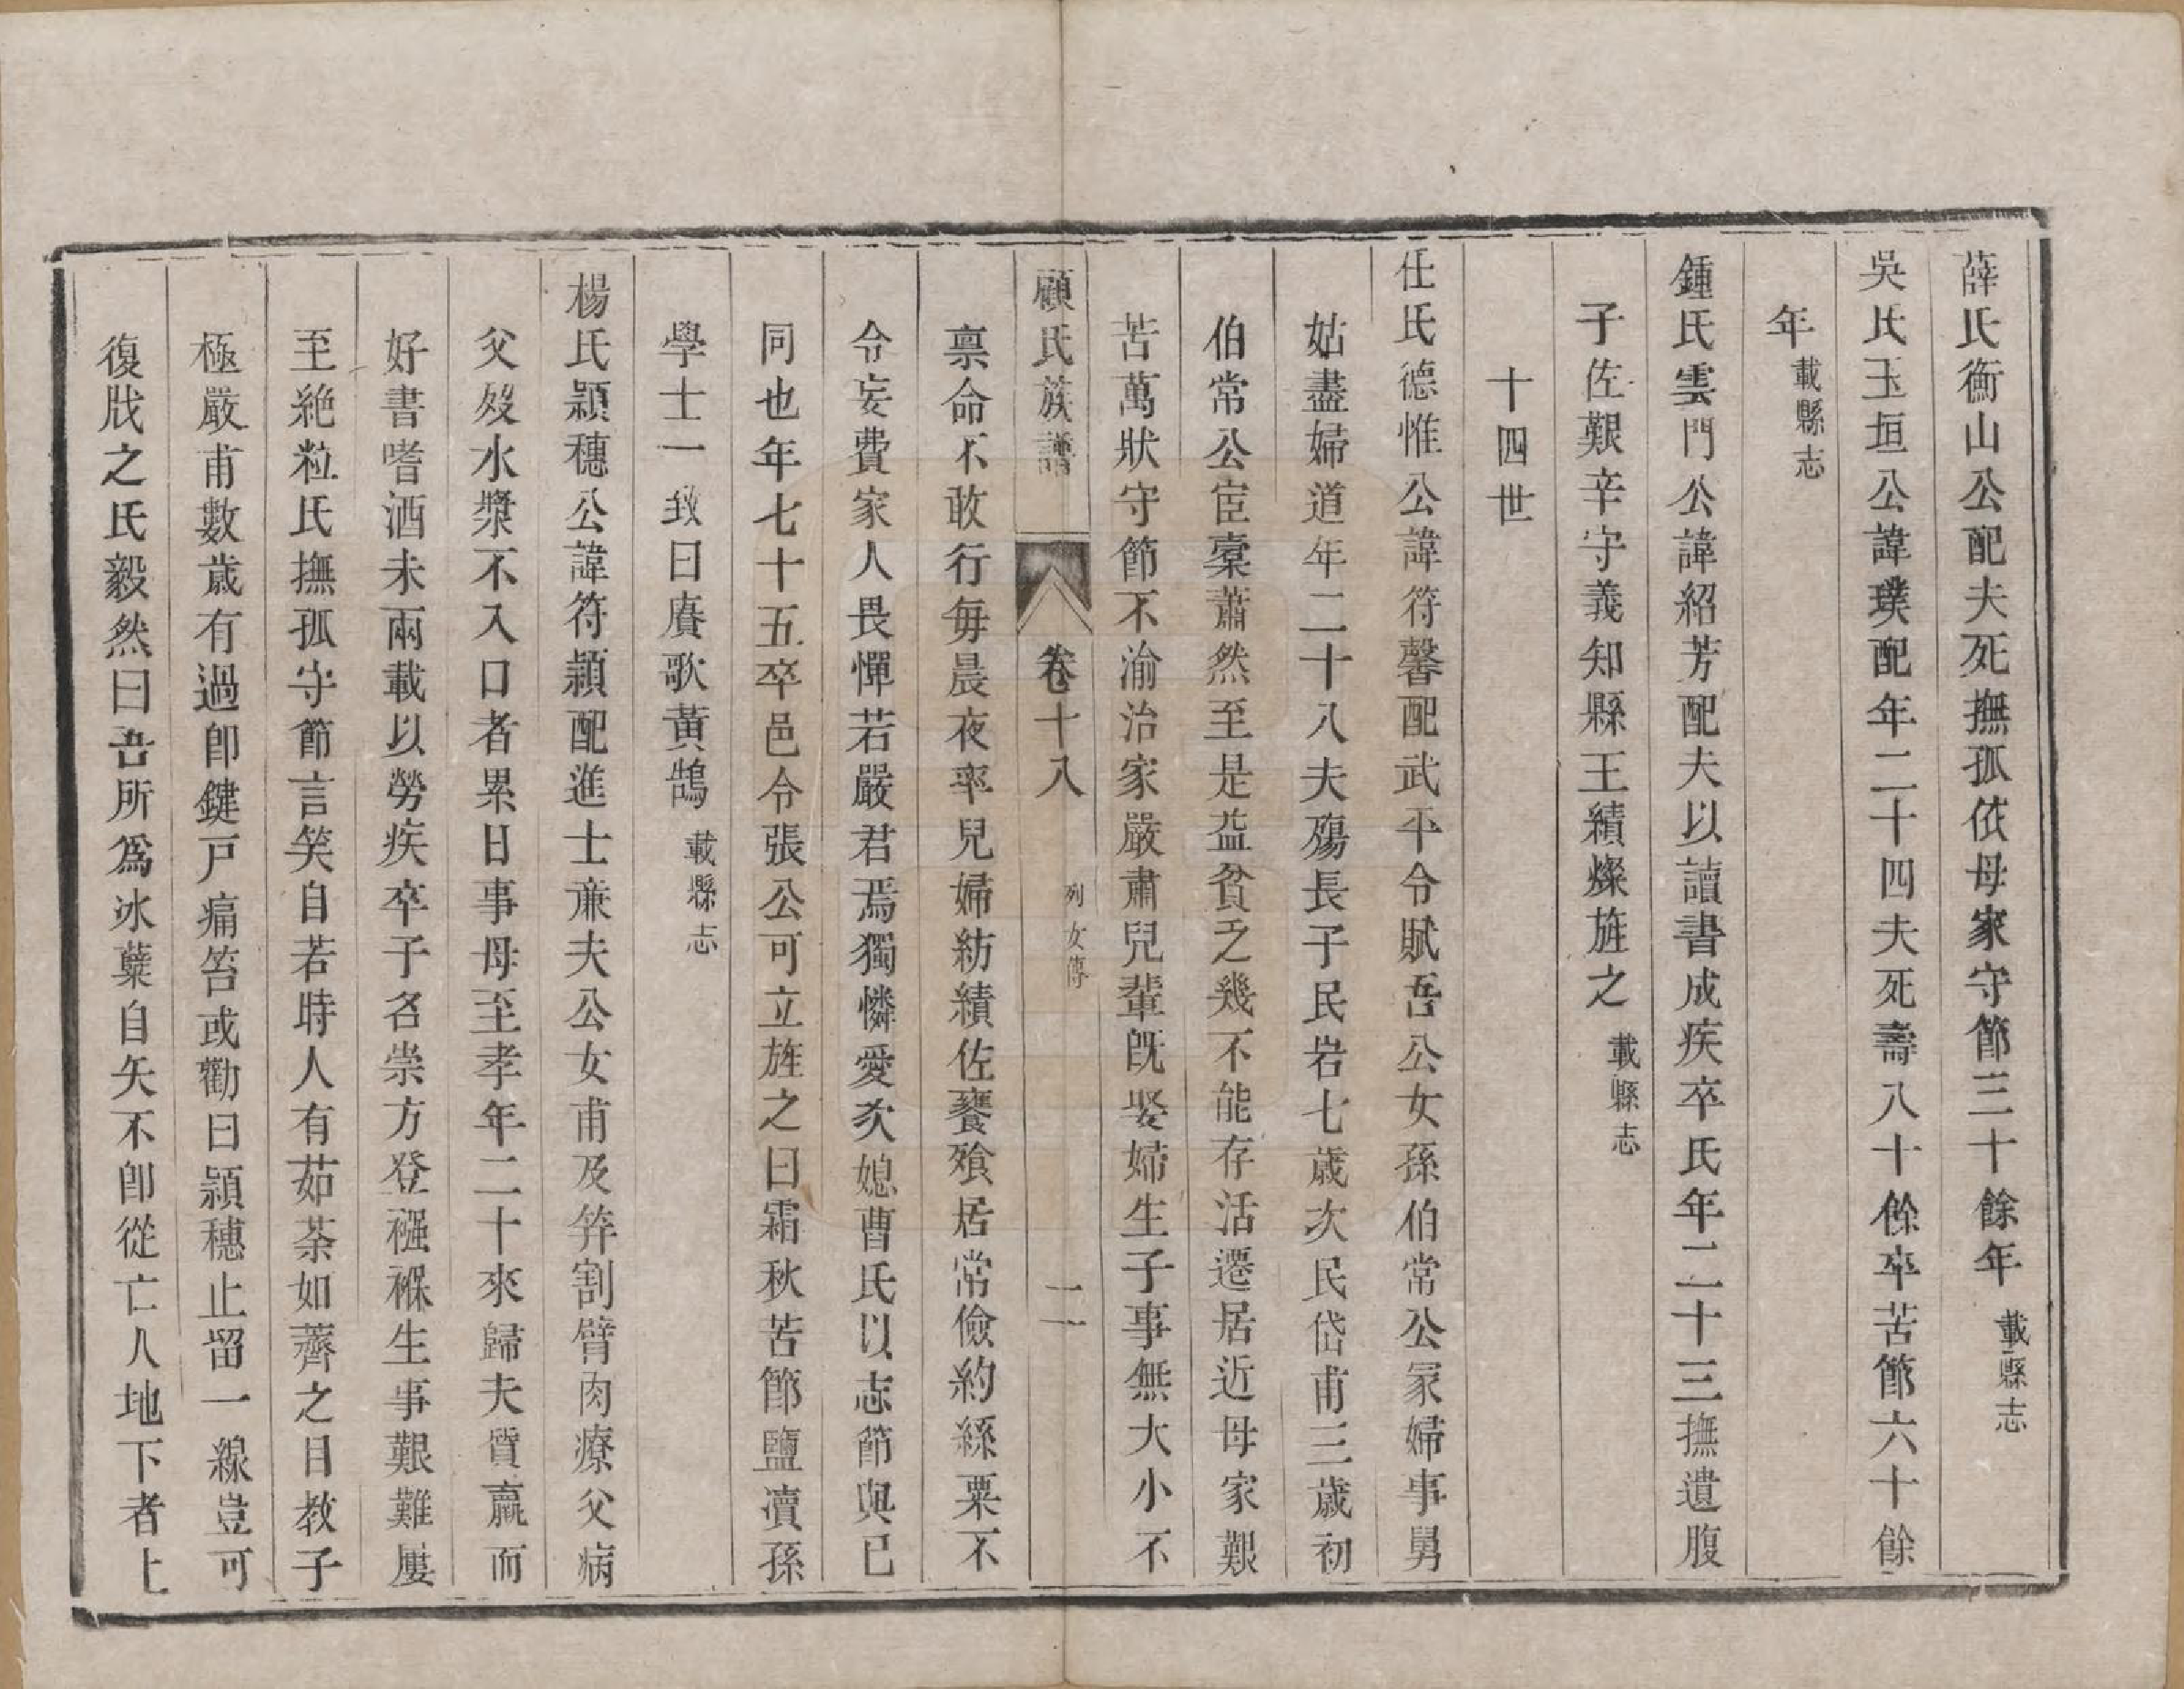 薛氏衡山公配夫死撫孤依母家守節三十餘年載縣志
吳氏玉垣公諱璞配年二十四夫死壽八十餘卒苦節六十餘
年載縣志
鍾氏雲門公諱紹芳配夫以讀書成疾卒氏年二十三撫遺腹
子佐艱辛守義知縣王績燦旌之載縣志
十四世
任氏德惟公諱符馨配武平令賦吾公女孫伯常公冢婦事舅
姑盡婦道年二十八夫殤長子民岩七歲次民岱甫三歲初
伯常公宦橐蕭然至是益貧乏幾不能存活遷居近母家艱
苦萬狀守節不渝治家嚴肅兒輩旣娶婦生子事無大小不
顧氏族譜
卷十八
列女傳
二
禀命不敢行每晨夜率兒婦紡績佐饔飧居常儉約絲粟不
令妄費家人畏憚若嚴君焉獨憐愛次媳曹氏以志節與己
同也年七十五卒邑令張公可立旌之曰霜秋苦節鹽瀆孫
學士一致曰賡歌黃鵠載縣志
楊氏穎穗公諱符穎配進士亷夫公女甫及笄割臂肉療父病
父歿水漿不入口者累日事母至孝年二十來歸夫質羸而
好書嗜酒未兩載以勞疾卒子名崇方登襁褓生事艱難屢
至絶粒氏撫孤守節言笑自若時人有茹荼如薺之目教子
極嚴甫數歲有過卽鍵戸痛笞或勸曰穎穗止留一線豈可
復戕之氏毅然曰吾所爲冰蘗自矢不卽從亡人地下者上